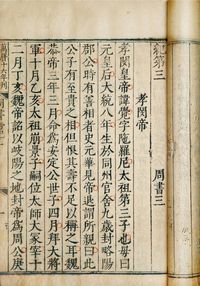 紀第三　周書三
孝閔帝
孝閔皇帝諱覺字陁羅尼太祖第三子也母曰
元皇后大統八年生於同州官舍九歲封略陽
郡公時有善相者史元華見帝退謂所親曰此
公子有至貴之相但恨其壽不足以稱之耳魏
恭帝三年三月命為安定公世子四月拜大將
軍十月乙亥太祖崩景子嗣位太師大冢宰十
二月丁亥魏帝詔以岐陽之地封帝為周公庚
萬曆十六年刊